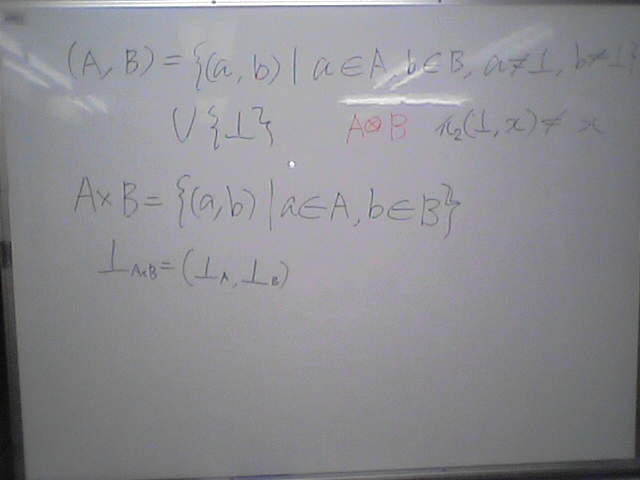 (A, B) = {(a, b) | a ∈ A, b ∈ B, a ≠ ⊥, b ≠ ⊥}
∪ {⊥} A⊗B π₂(⊥, x) ≠ x
A×B = {(a, b) | a ∈ A, b ∈ B}
⊥_{A×B} = (⊥_A, ⊥_B)